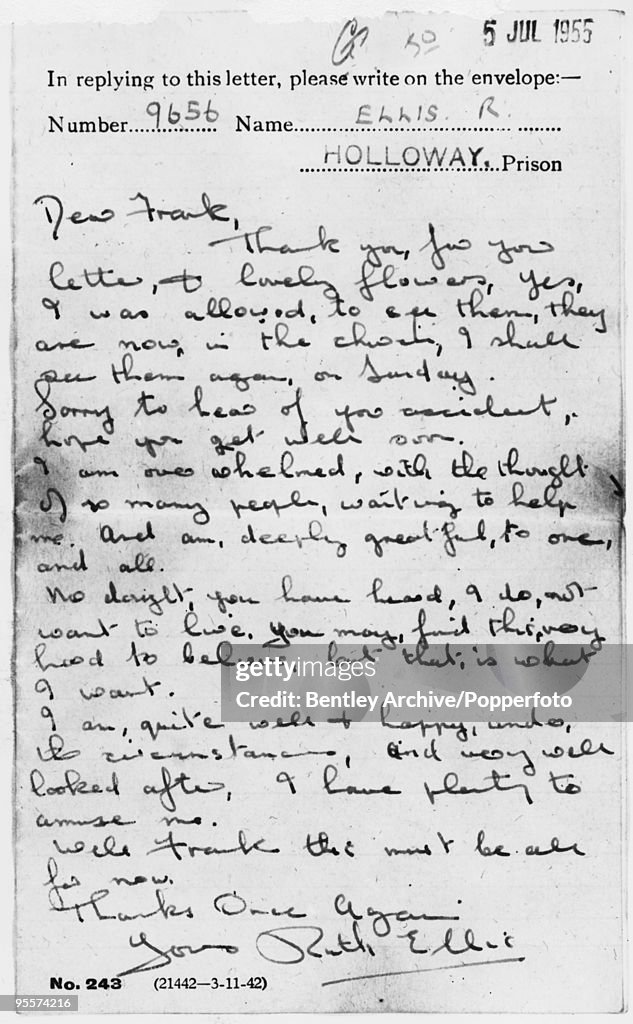 5 JUL 1955
In replying to this letter, please write on the envelope:—
Number 9656 Name ELLIS. R.
HOLLOWAY. Prison
Dear Frank,
Thank you, for your
letter, & lovely flowers, yes,
I was allowed, to see them, they
are now, in the church, I shall
see them again, on Sunday.
Sorry to hear of your accident,
hope you get well soon.
I am over whelmed, with the thought
of so many people, waiting to help
me. And am, deeply greatful, to one,
and all.
No dought, you have heard, I do, not
want to live. You may, find this, very
hard to believe, but that, is what
I want.
I am, quite well & happy, under,
the circumstances, and very well
looked after, I have plenty to
amuse me.
Well Frank this must be all
for now.
Thanks Once Again
Yours Ruth Ellis
No. 243 (21442—3-11-42)
gettyimages
Bentley Archive/Popperfoto
95574216